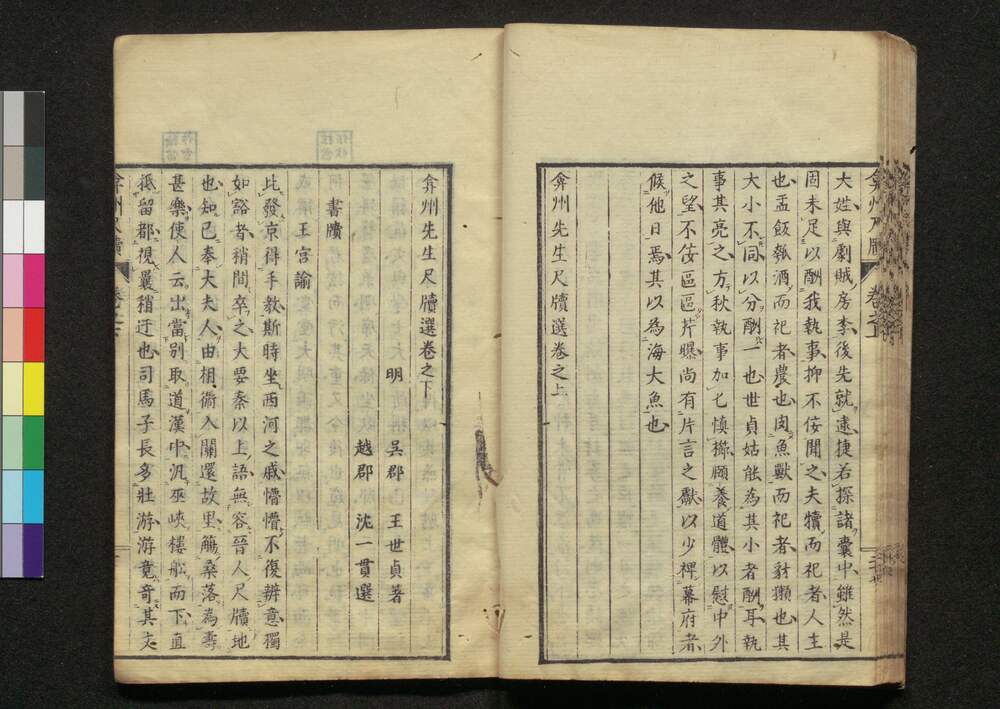 大姓與劇賊房李後先就逮捷若探諸囊中雖然是
固未足以酬我執事抑不佞聞之夫犢而祀者人主
也盂飯瓠酒而祀者農也肉魚獸而祀者豺獺也其
大小不同以分酬一也世貞姑能為其小者酬耳執
事其亮之方秋執事加匕慎擲頤養道體以慰中外
之望不佞區區芹曝尚有片言之獻以少裨幕府者
候他日焉其以為海大魚也
弇州先生尺牘選卷之上
弇州先生尺牘選卷之下
明 吳郡 王世貞著
越郡 沈一貫選
書牘
王宮諭
比發京得手教斯時坐西河之戚懵懵不復辨意獨
如豁者稍間卒之大要秦以上語無容晉人尺牘地
也知已奉大夫人由相衛入關還故里觴桑落為壽
甚樂使人云出當別取道漢中汎巫峽樓船而下直
抵留郡視曩稍迂也司馬子長多壯游游竟奇其文
弇州尺牘 卷之下